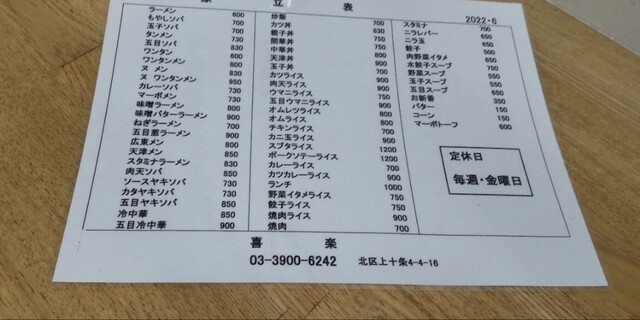 献立表
2022・6
ラーメン 600
もやしソバ 730
玉子ソバ 700
タンメン 730
五目ソバ 830
ワンタン
ワンタンメン
メン 830
ワンタンメン 950
カレーソバ 730
マーボメン
味噌ラーメン 800
味噌バターラーメン 900
ねぎラーメン 700
五目葱ラーメン 900
広東メン 800
天津メン 850
スタミナラーメン 830
肉天ソバ 850
ソースヤキソバ 730
カタヤキソバ 730
五目ヤキソバ
冷中華 850
五目冷中華 900
炒飯
カツ丼
親子丼
開華丼
中華丼
天津丼
玉子丼
カツライス
肉天ライス
ウマニライス
五目ウマニライス
オムレツライス
オムライス
チキンライス
カニ玉ライス
スブタライス
ポークソテーライス 1200
カレーライス
カツカレーライス
ランチ 1000
野菜イタメライス 750
餃子ライス 750
焼肉ライス 900
焼肉 700
スタミナ 700
ニラレバー
ニラ玉
餃子
肉野菜イタメ
水餃子スープ
野菜スープ
玉子スープ
五目スープ
お新香 350
バター 150
コーン 150
マーボトーフ 600
定休日
毎週・金曜日
喜楽
03-3900-6242 北区上十条4-4-16